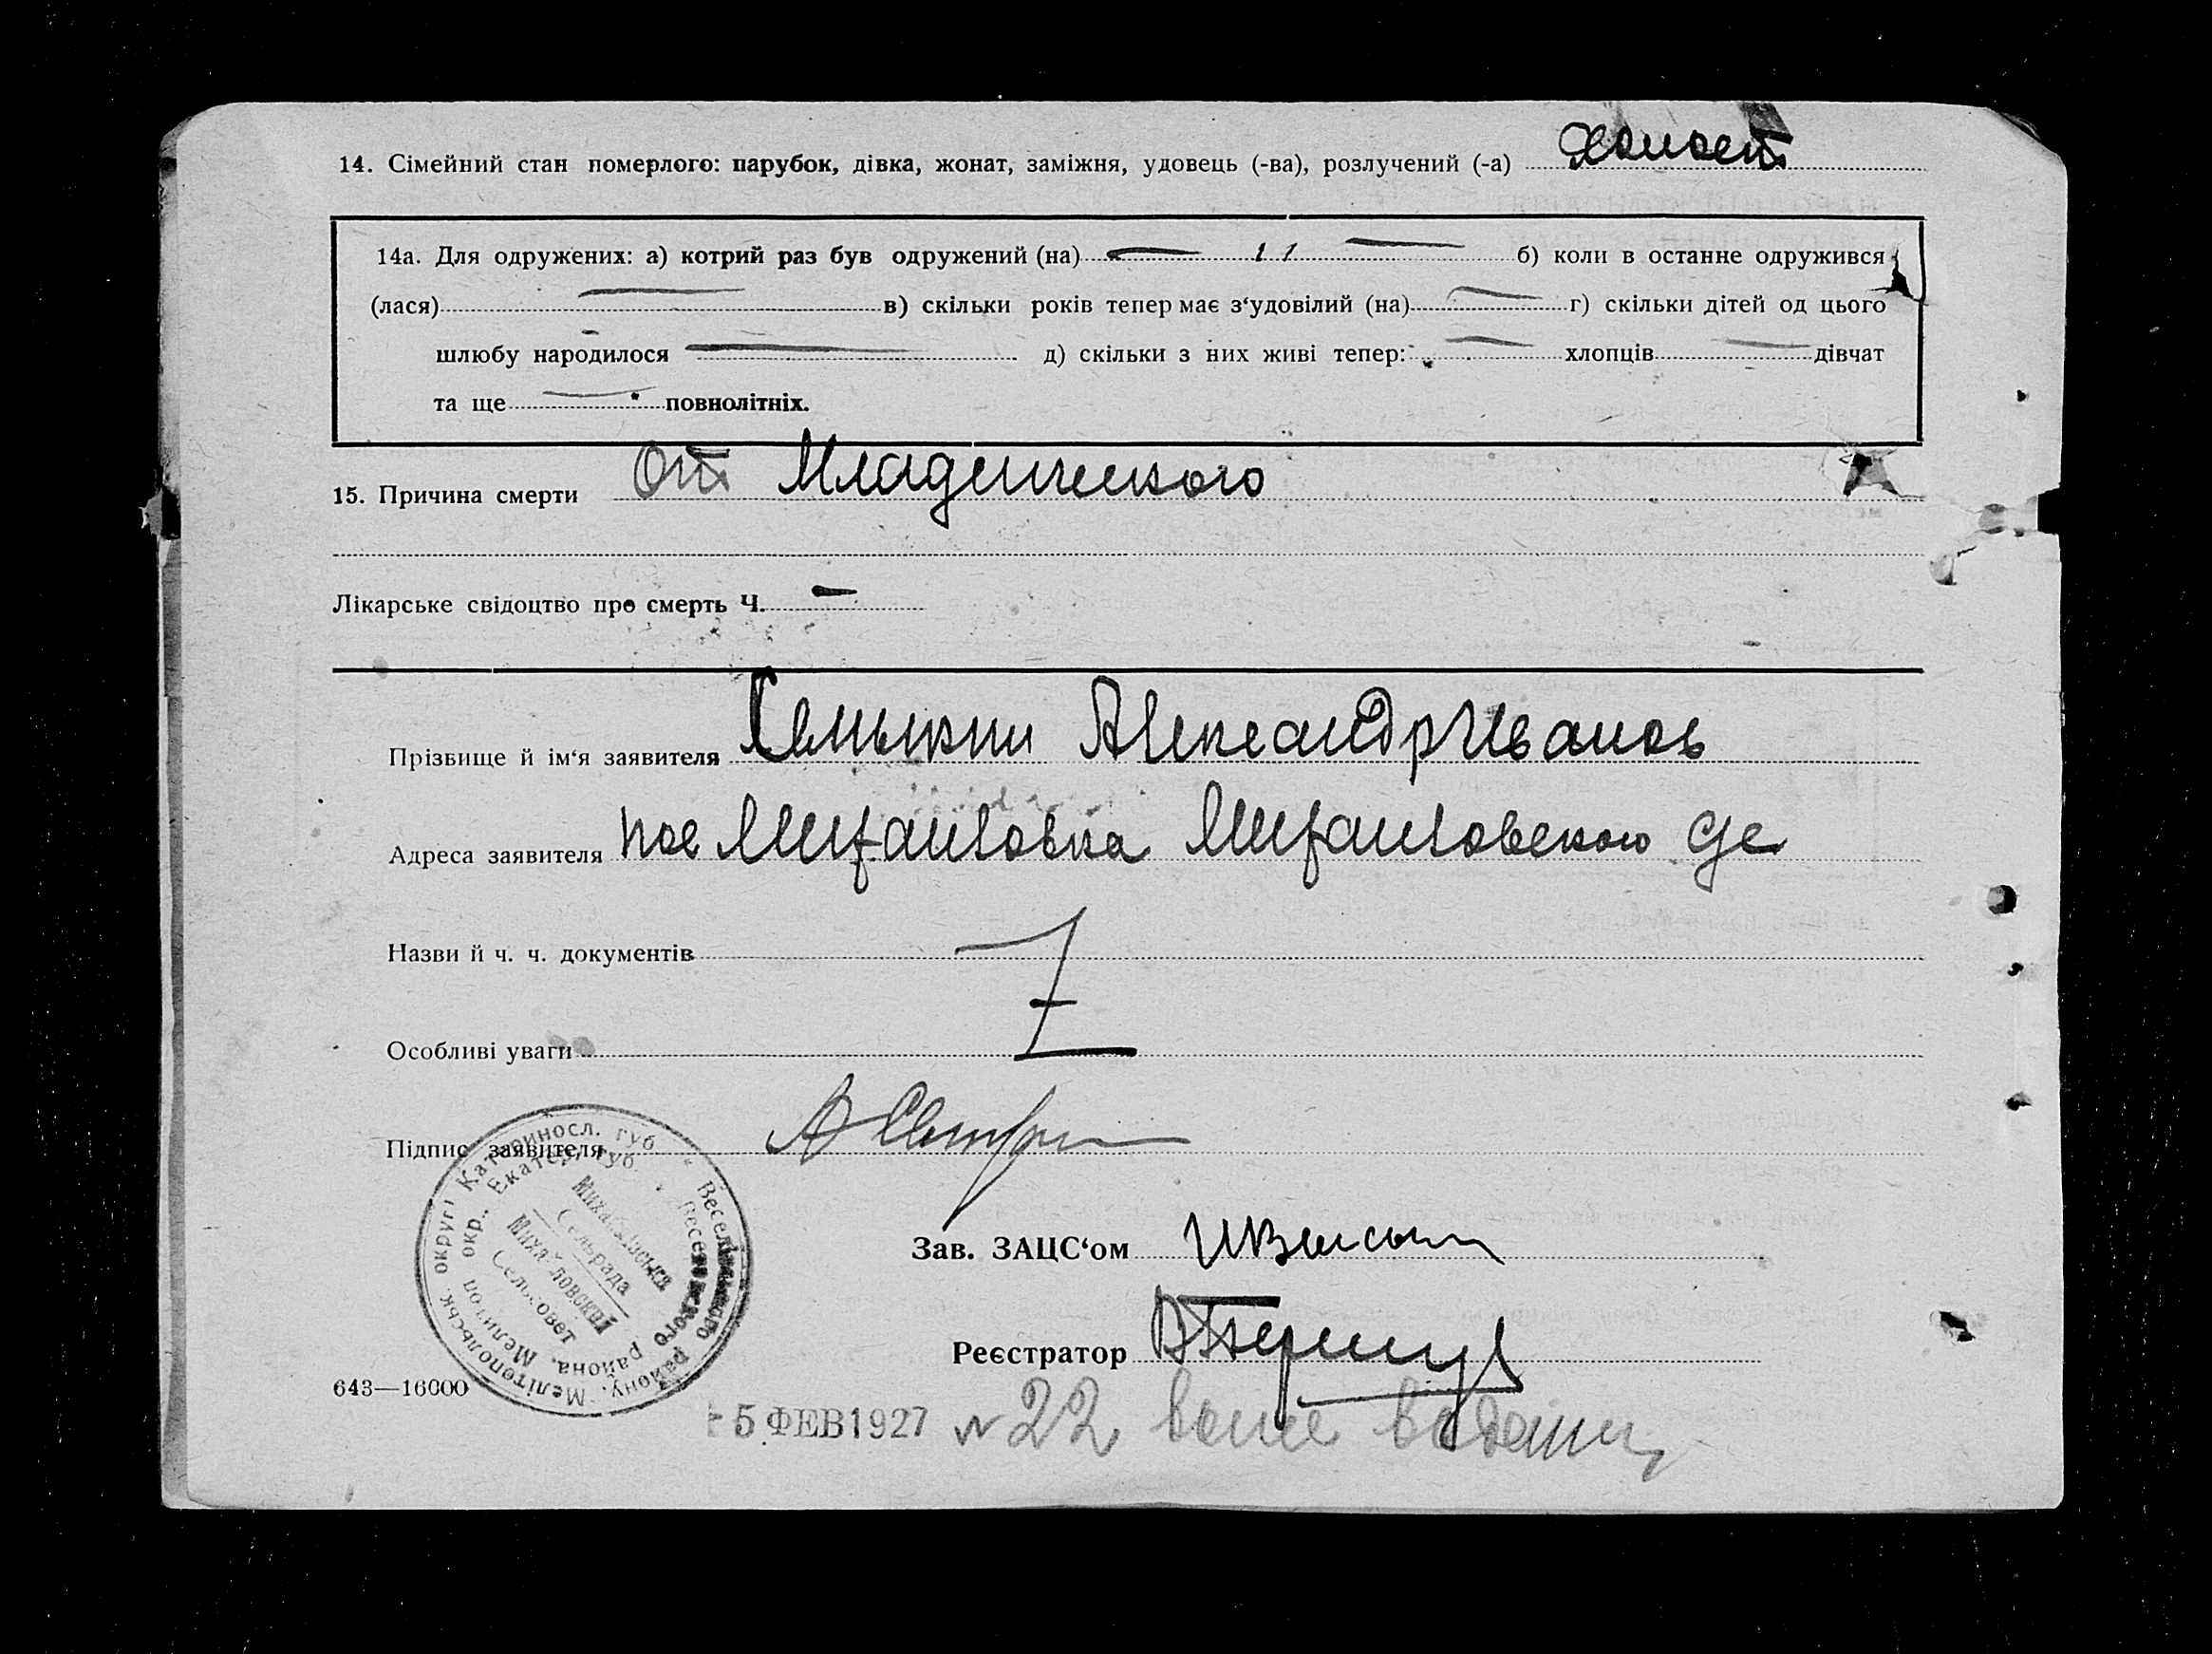 14. Сімейний стан померлого: парубок, дівка, жонат, заміжня, удовець (-ва), розлучений (-а) холост
14а. Для одружених: а) котрий раз був одружений (на) — " — б) коли в останнє одружився
(лася) — в) скільки років тепер має з‘удовілий (на) — г) скільки дітей од цього
шлюбу народилося — д) скільки з них живі тепер: — хлопців — дівчат
та ще — повнолітніх.
15. Причина смерти От Младенческого
Лікарське свідоцтво про смерть Ч. —
Прізвище й ім‘я заявителя Александр Иванов
Адреса заявителя пос Михайловка Михайловского с/с
Назви й ч. ч. документів
Особливі уваги
Підпис заявителя
Катериносл. губ. Веселівського району, Мелітопольськ. округи
Екатер. губ. Веселовского района, Мелитоп. окр.
Михайлівська
Сельрада
Михайловский
Сельсовет
Зав. ЗАЦС‘ом
Реєстратор
643—16000
- 5 ФЕВ 1927 № 22